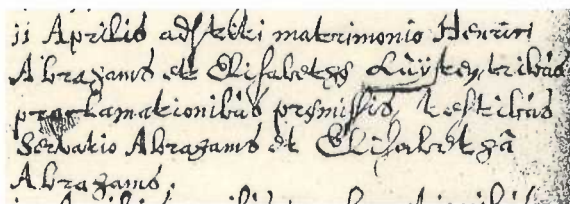 ij Aprilis adstiti matrimonio Henrici
Abrahams et Elisabethę Luÿten, tribus
proclamationibus pręmissis, testibus
Servatio Abrahams et Elisabetha
Abrahams.